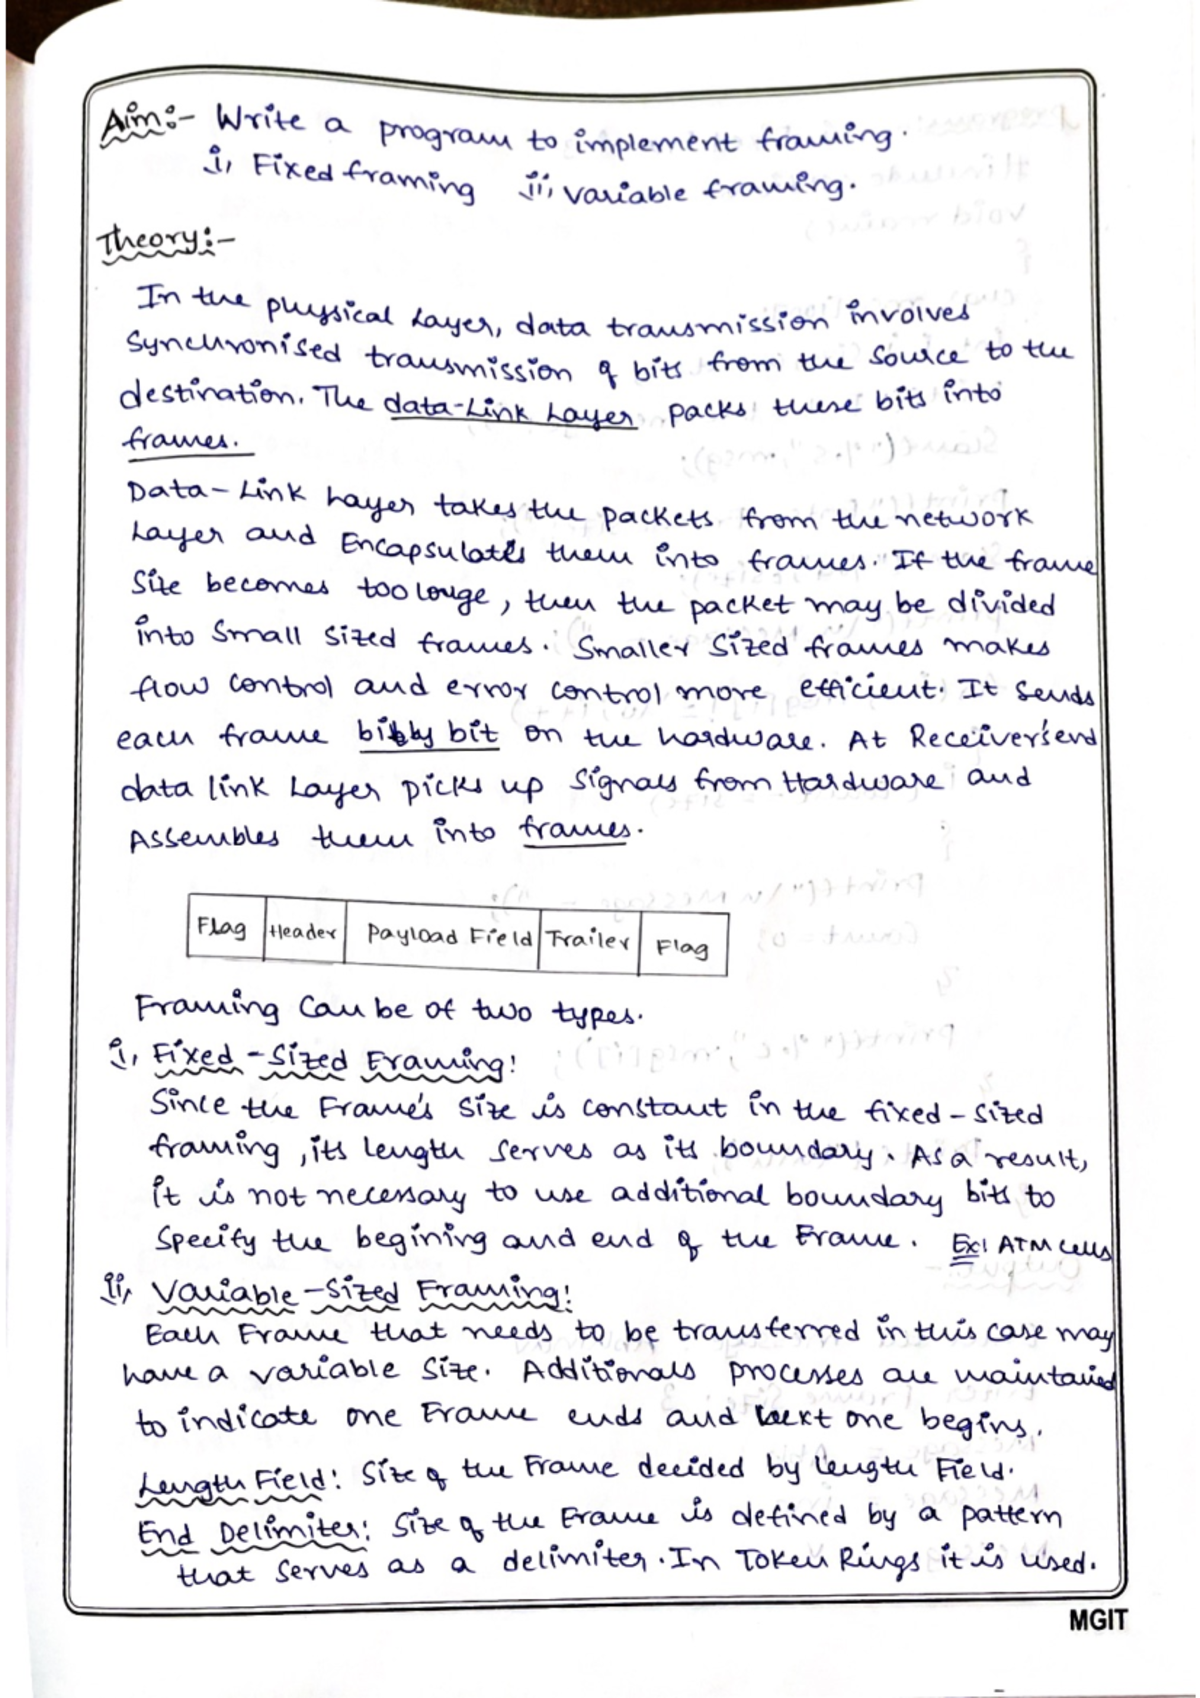 Aim:- Write a program to implement framing.
i, Fixed framing ii, variable framing.
Theory:-
In the physical Layer, data transmission involves
Synchronised transmission of bits from the source to the
destination. The data-Link Layer packs these bits into
frames.
Data-Link Layer takes the packets from the network
Layer and Encapsulates them into frames. If the frame
Size becomes too large, then the packet may be divided
into Small Sized frames. Smaller Sized frames makes
flow control and error control more efficient. It sends
each frame bit by bit on the hardware. At Receiver's end
data link Layer picks up Signals from Hardware and
Assembles them into frames.
Flag Header Payload Field Trailer Flag
Framing Can be of two types.
i, Fixed-Sized Framing:
Since the Frame's Size is constant in the fixed-sized
framing, its length serves as its boundary. As a result,
it is not necessary to use additional boundary bits to
Specify the begining and end of the Frame. Ex: ATM cells
ii, Variable-Sized Framing:
Each Frame that needs to be transferred in this case may
have a variable Size. Additionals processes are maintained
to indicate one Frame ends and next one begins.
Length Field: Size of the Frame decided by length Field.
End Delimiter: Size of the Frame is defined by a pattern
that serves as a delimiter. In Token Rings it is used.
MGIT